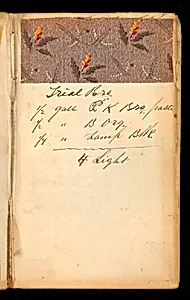 Trial
1/2 gall P K Bro
1/2 " B Org
1/4 " Lamp Blk
4 Light